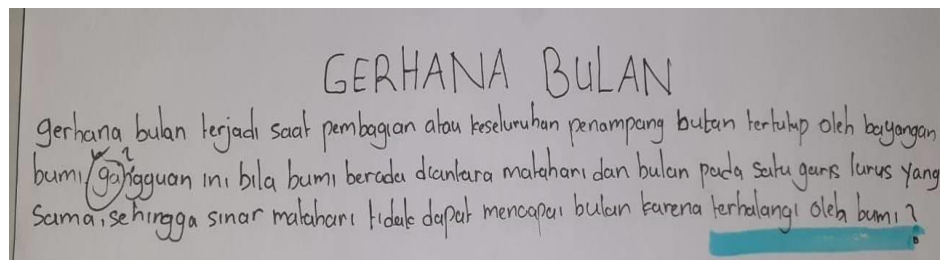 GERHANA BULAN
gerhana bulan terjadi saat pembagian atau keseluruhan penampang butan tertutup oleh bayangan
bumi/gangguan ini bila bumi berada diantara matahari dan bulan pada satu garis lurus yang
sama, sehingga sinar matahari tidak dapat mencapai bulan karena terhalangi oleh bumi?